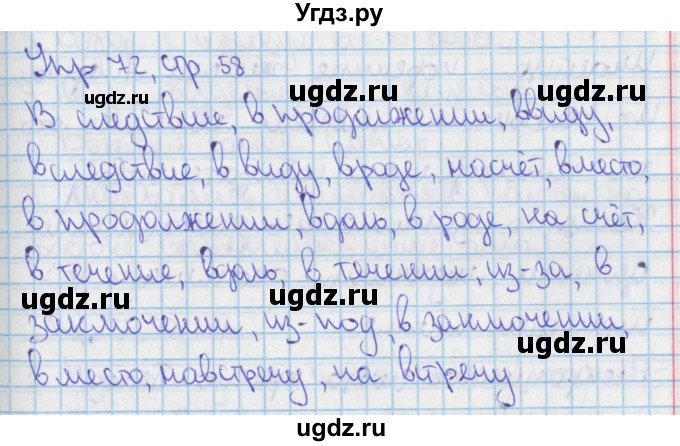 Угдз.ру
Упр 72, стр 58
ugdz.ru ugdz.ru
В следствие, в продолжении, ввиду,
ugdz.ru ugdz.ru
вследствие, в виду, вроде, насчёт, вместо,
в продолжении, вдаль, в роде, на счёт,
ugdz.ru ugdz.ru
в течение, вдаль, в течении, из-за, в
ugdz.ru ugdz.ru
заключении, из-под, в заключении,
ugdz.ru
в место, навстречу, на встречу
ugdz.ru
Угдз.ру